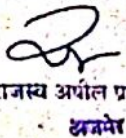 राजस्व अपील प्र
अजमेर